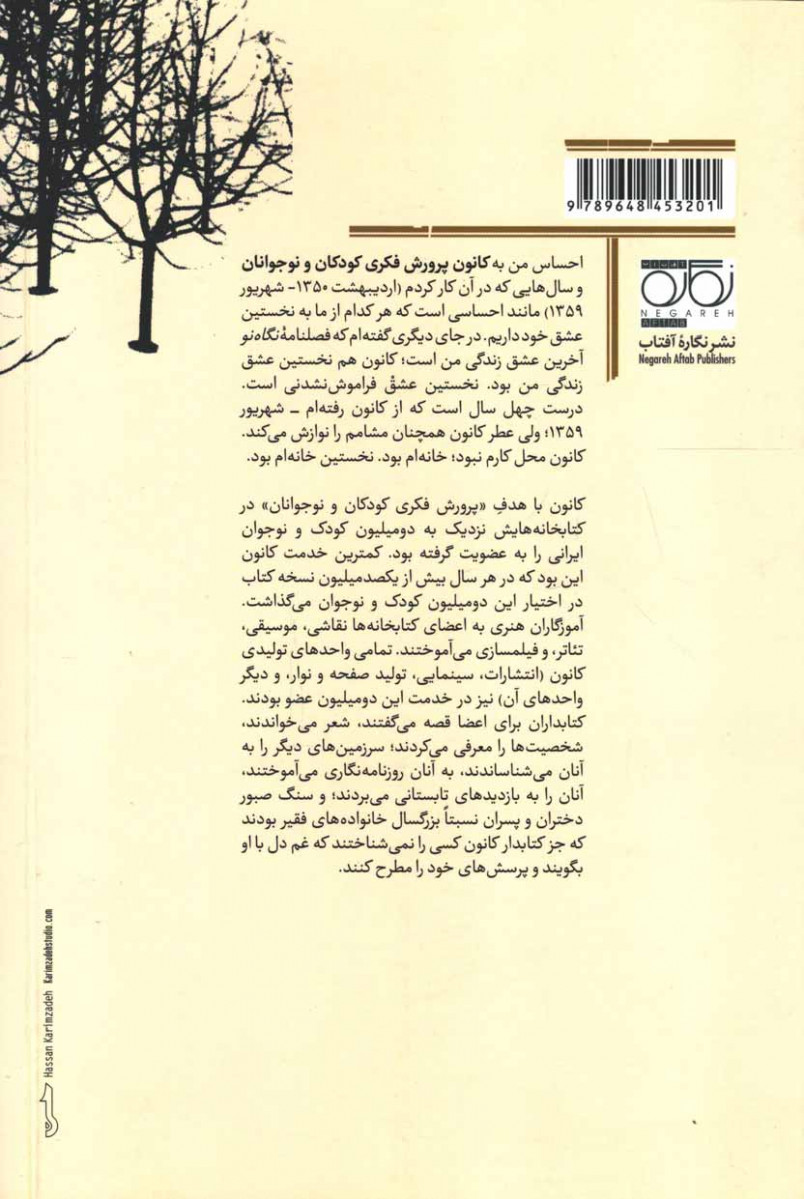 9 789648 453201
NEGAREH
AFTAB
نشر نگارهٔ آفتاب
Negareh Aftab Publishers
احساس من به کانون پرورش فکری کودکان و نوجوانان
و سال‌هایی که در آن کار کردم (اردیبهشت ۱۳۵۰- شهریور
۱۳۵۹) مانند احساسی است که هر کدام از ما به نخستین
عشق خود داریم. در جای دیگری گفته‌ام که فصلنامهٔ نگاه‌نو
آخرین عشق زندگی من است؛ کانون هم نخستین عشق
زندگی من بود. نخستین عشقْ فراموش‌نشدنی است.
درست چهل سال است که از کانون رفته‌ام – شهریور
۱۳۵۹؛ ولی عطر کانون همچنان مشامم را نوازش می‌کند.
کانون محل کارم نبود؛ خانه‌ام بود. نخستین خانه‌ام بود.
کانون با هدفِ «پرورش فکری کودکان و نوجوانان» در
کتابخانه‌هایش نزدیک به دومیلیون کودک و نوجوان
ایرانی را به عضویت گرفته بود. کمترین خدمت کانون
این بود که در هر سال بیش از یکصدمیلیون نسخه کتاب
در اختیار این دومیلیون کودک و نوجوان می‌گذاشت.
آموزگاران هنری به اعضای کتابخانه‌ها نقاشی، موسیقی،
تئاتر، و فیلمسازی می‌آموختند. تمامی واحدهای تولیدی
کانون (انتشارات، سینمایی، تولید صفحه و نوار، و دیگر
واحدهای آن) نیز در خدمت این دومیلیون عضو بودند.
کتابداران برای اعضا قصه می‌گفتند، شعر می‌خواندند،
شخصیت‌ها را معرفی می‌کردند؛ سرزمین‌های دیگر را به
آنان می‌شناساندند، به آنان روزنامه‌نگاری می‌آموختند،
آنان را به بازدیدهای تابستانی می‌بردند؛ و سنگ صبور
دختران و پسران نسبتاً بزرگسال خانواده‌های فقیر بودند
که جز کتابدار کانون کسی را نمی‌شناختند که غم دل با او
بگویند و پرسش‌های خود را مطرح کنند.
Hassan Karimzadeh Karimzadehstudio.com